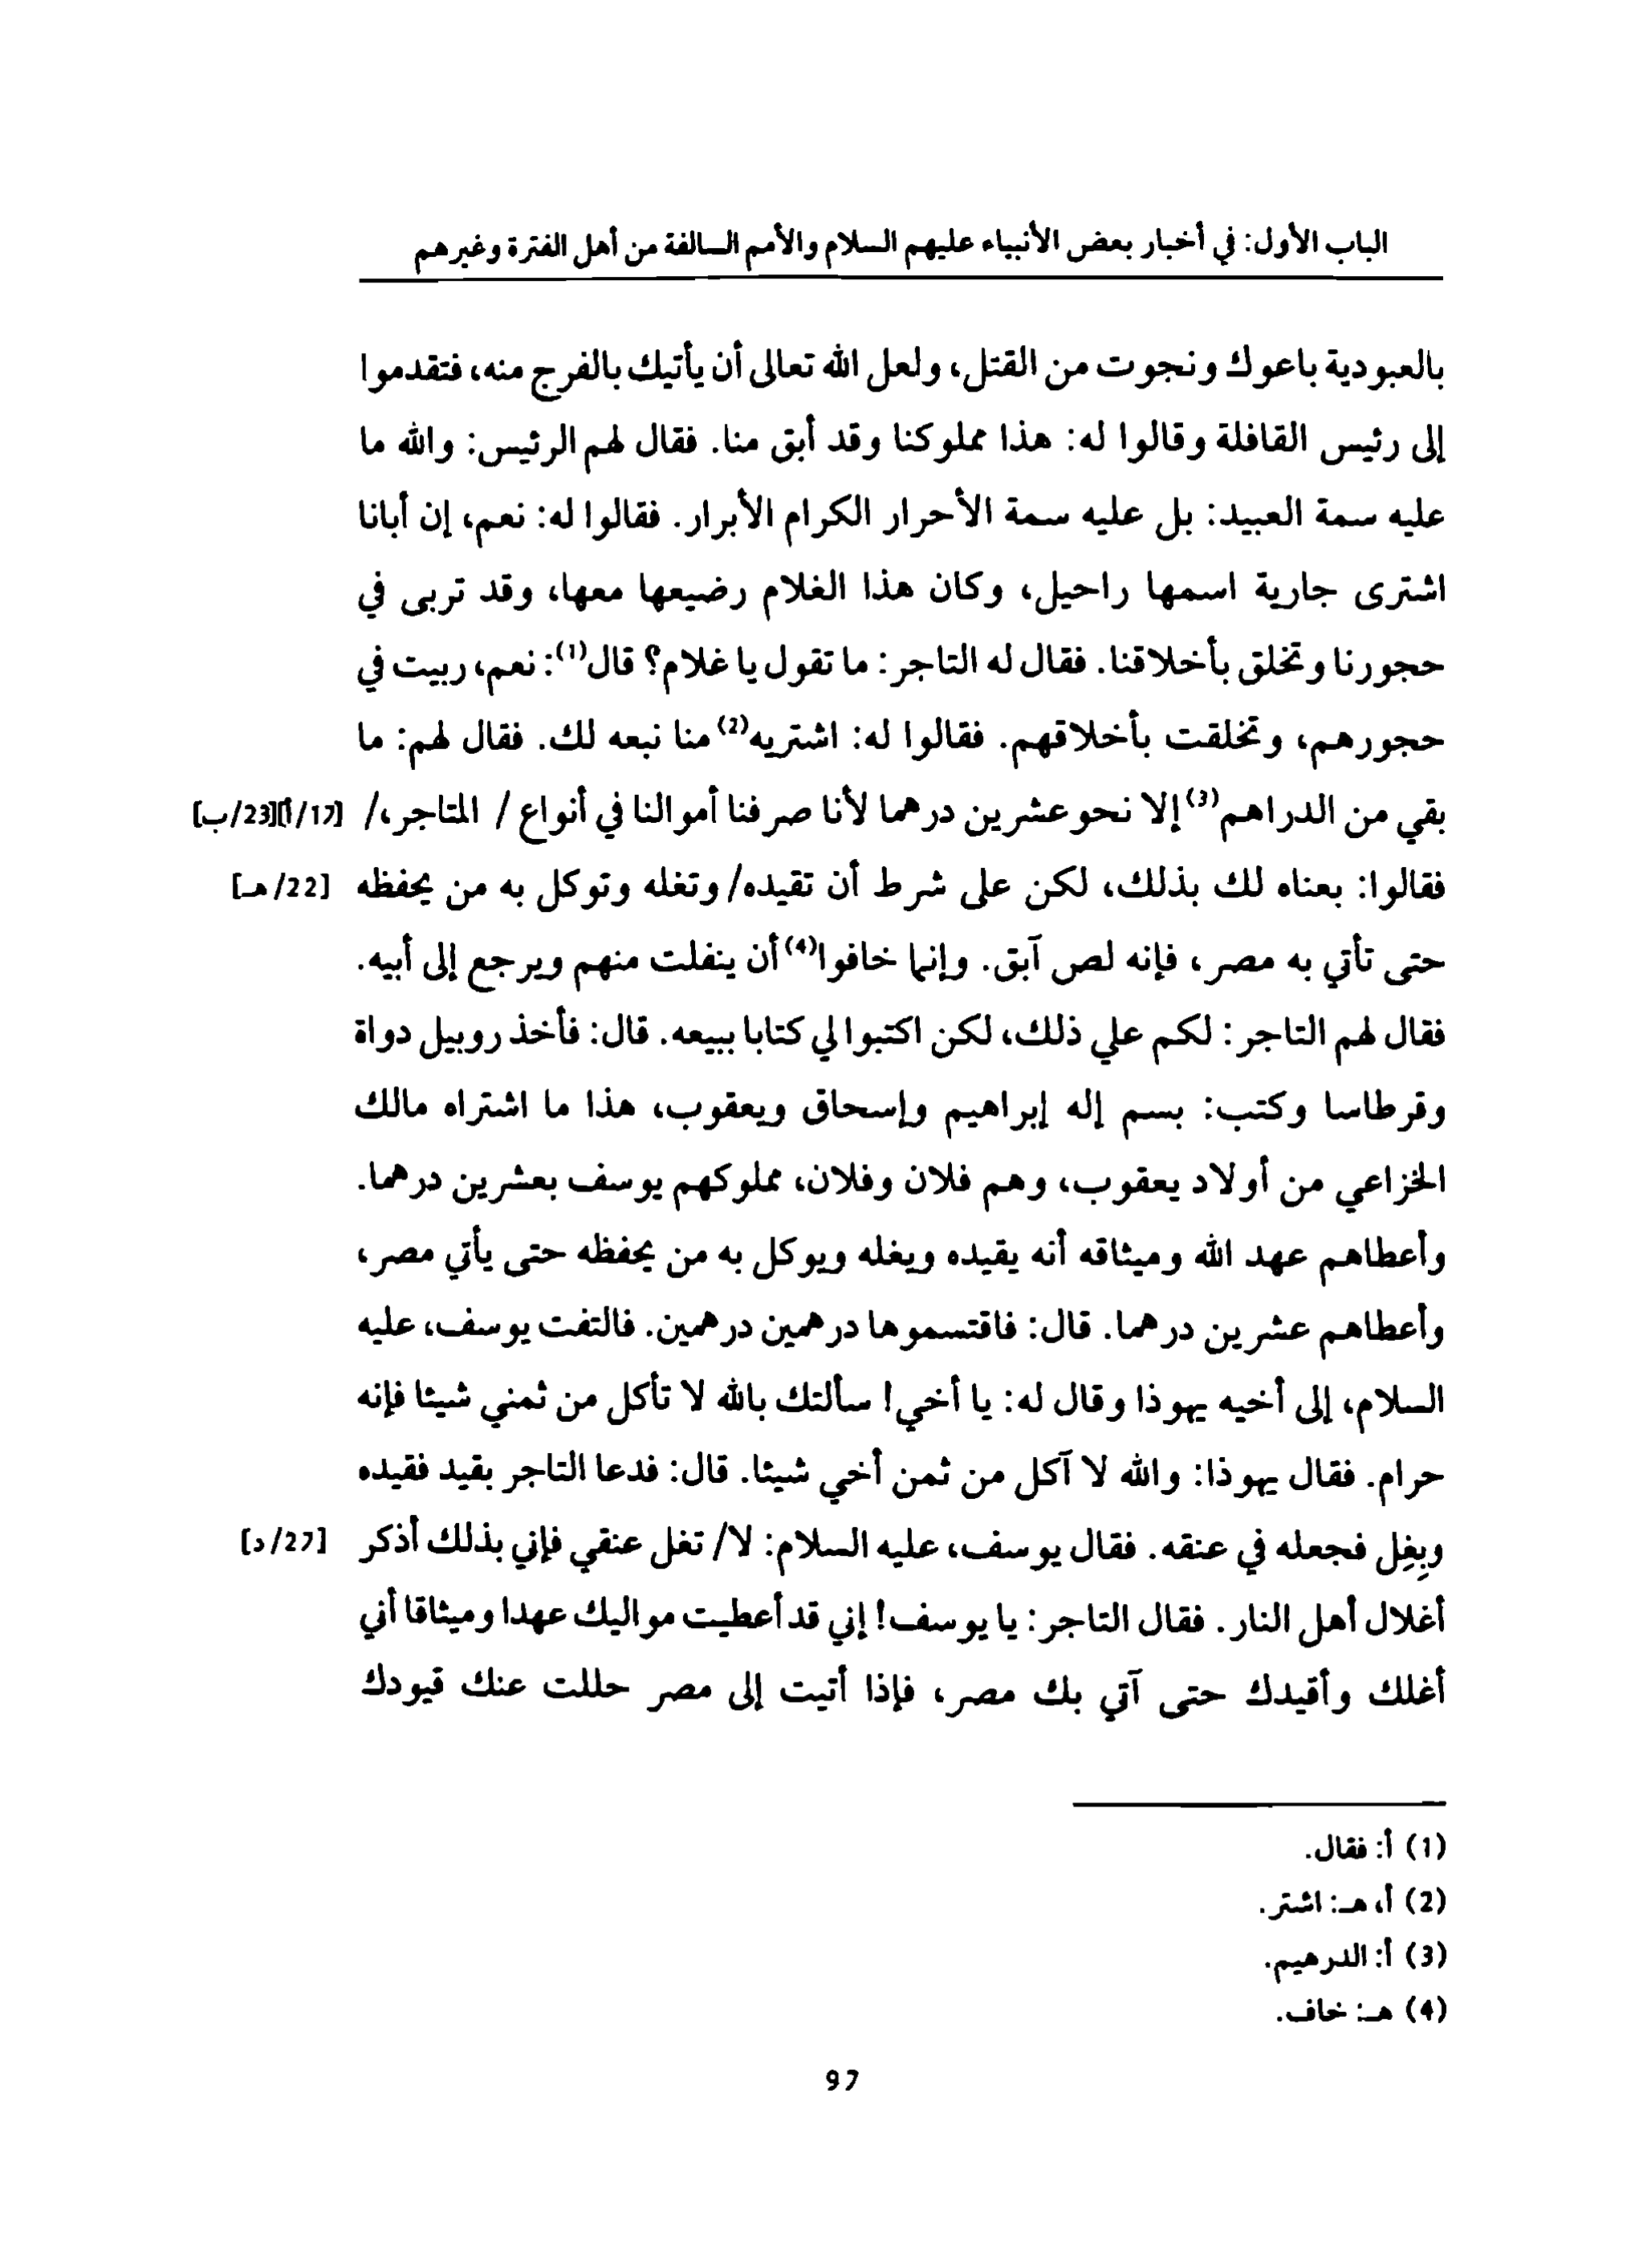 الباب الأول: في أخبار بعض الأنبياء عليهم السلام والأمم السالفة من أهل الفترة وغيرهم
بالعبودية باعوك ونجوت من القتل، ولعل الله تعالى أن يأتيك بالفرج منه، فتقدموا
إلى رئيس القافلة وقالوا له: هذا مملوكنا وقد أبق منا. فقال لهم الرئيس: والله ما
عليه سمة العبيد: بل عليه سمة الأحرار الكرام الأبرار. فقالوا له: نعم، إن أبانا
اشترى جارية اسمها راحيل، وكان هذا الغلام رضيعها معها، وقد تربى في
حجورنا وتخلق بأخلاقنا. فقال له التاجر: ما تقول يا غلام؟ قال(1): نعم، ربيت في
حجورهم، وتخلقت بأخلاقهم. فقالوا له: اشتريه(2) منا نبعه لك. فقال لهم: ما
بقي من الدراهم(3) إلا نحو عشرين درهما لأنا صرفنا أموالنا في أنواع / المتاجر،/ [17/أ][23/ب]
فقالوا: بعناه لك بذلك، لكن على شرط أن تقيده/ وتغله وتوكل به من يحفظه [22/هـ]
حتى تأتي به مصر، فإنه لص آبق. وإنما خافوا(4) أن ينفلت منهم ويرجع إلى أبيه.
فقال لهم التاجر: لكم علي ذلك، لكن اكتبوا لي كتابا ببيعه. قال: فأخذ روبيل دواة
وقرطاسا وكتب: بسم إله إبراهيم وإسحاق ويعقوب، هذا ما اشتراه مالك
الخزاعي من أولاد يعقوب، وهم فلان وفلان، مملوكهم يوسف بعشرين درهما.
وأعطاهم عهد الله وميثاقه أنه يقيده ويغله ويوكل به من يحفظه حتى يأتي مصر،
وأعطاهم عشرين درهما. قال: فاقتسموها درهمين درهمين. فالتفت يوسف، عليه
السلام، إلى أخيه يهوذا وقال له: يا أخي! سألتك بالله لا تأكل من ثمني شيئا فإنه
حرام. فقال يهوذا: والله لا آكل من ثمن أخي شيئا. قال: فدعا التاجر بقيد فقيده
وبِغِل فجعله في عنقه. فقال يوسف، عليه السلام: لا/ تغل عنقي فإني بذلك أذكر [27/د]
أغلال أهل النار. فقال التاجر: يا يوسف! إني قد أعطيت مواليك عهدا وميثاقا أني
أغلك وأقيدك حتى آتي بك مصر، فإذا أتيت إلى مصر حللت عنك قيودك
(1) أ: فقال.
(2) أ، هـ: اشتر.
(3) أ: الدرهيم.
(4) هـ: خاف.
97